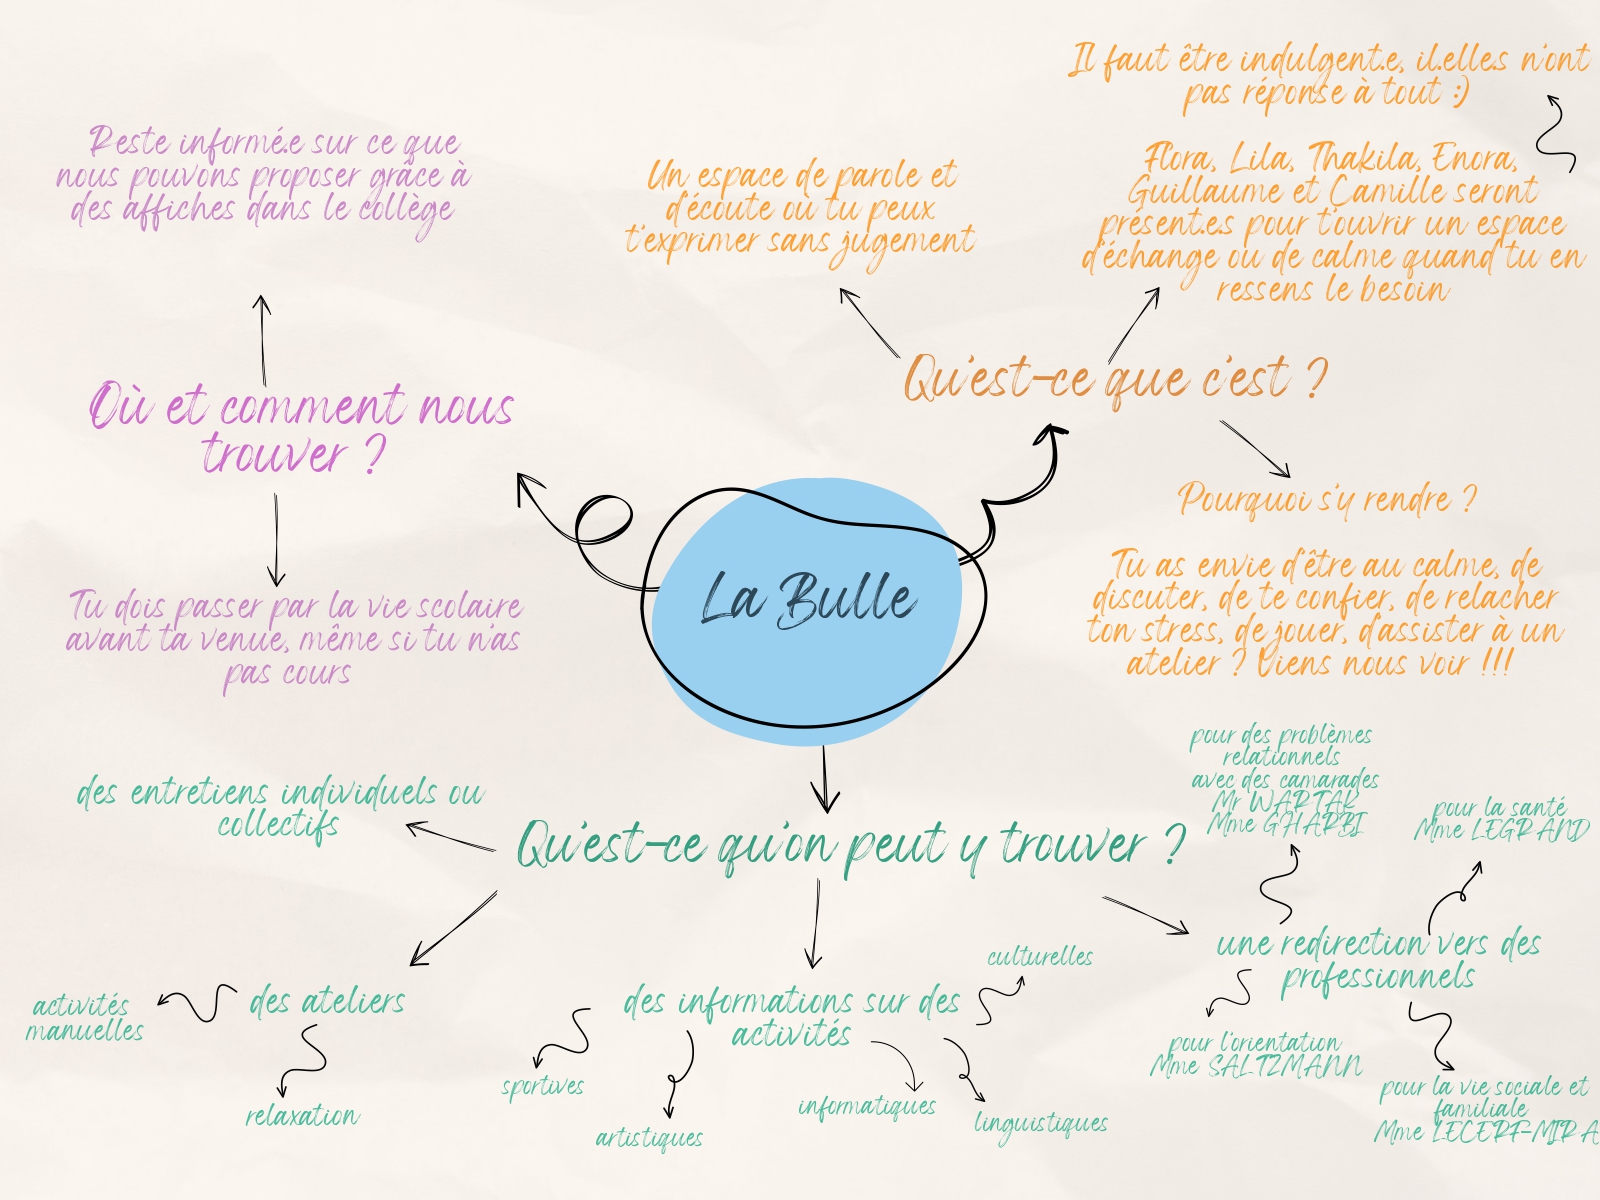 Il faut être indulgent.e, il.elle.s n'ont
pas réponse à tout :)
Flora, Lila, Thakila, Enora,
Guillaume et Camille seront
présent.e.s pour t'ouvrir un espace
d'échange ou de calme quand tu en
ressens le besoin
Reste informé.e sur ce que
nous pouvons proposer grâce à
des affiches dans le collège
Un espace de parole et
d'écoute où tu peux
t'exprimer sans jugement
Qu'est-ce que c'est ?
Où et comment nous
trouver ?
Pourquoi s'y rendre ?
Tu as envie d'être au calme, de
discuter, de te confier, de relacher
ton stress, de jouer, d'assister à un
atelier ? Viens nous voir !!!
La Bulle
Tu dois passer par la vie scolaire
avant ta venue, même si tu n'as
pas cours
des entretiens individuels ou
collectifs
Qu'est-ce qu'on peut y trouver ?
pour des problèmes
relationnels
avec des camarades
Mr WARTAK
Mme GHARBI
pour la santé
Mme LEGRAND
une redirection vers des
professionnels
pour l'orientation
Mme SALTZMANN
pour la vie sociale et
familiale
Mme LECERF-MIRA
des ateliers
activités
manuelles
relaxation
des informations sur des
activités
culturelles
sportives
artistiques
informatiques
linguistiques